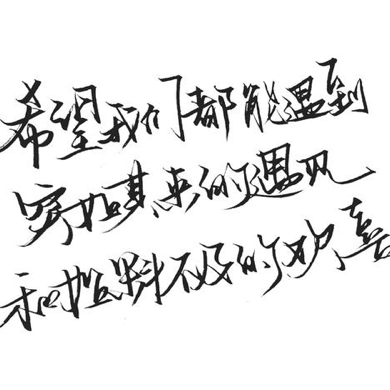 希望我们都能遇到
突如其来的遇见
和措料不及的欢喜